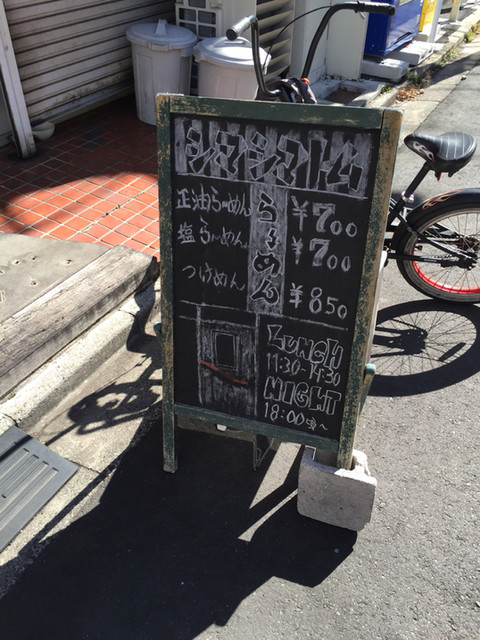 シマシマトム
らーめん
正油らーめん ¥700
塩らーめん ¥700
つけめん ¥850
LUNCH
11:30-14:30
NIGHT
18:00頃~